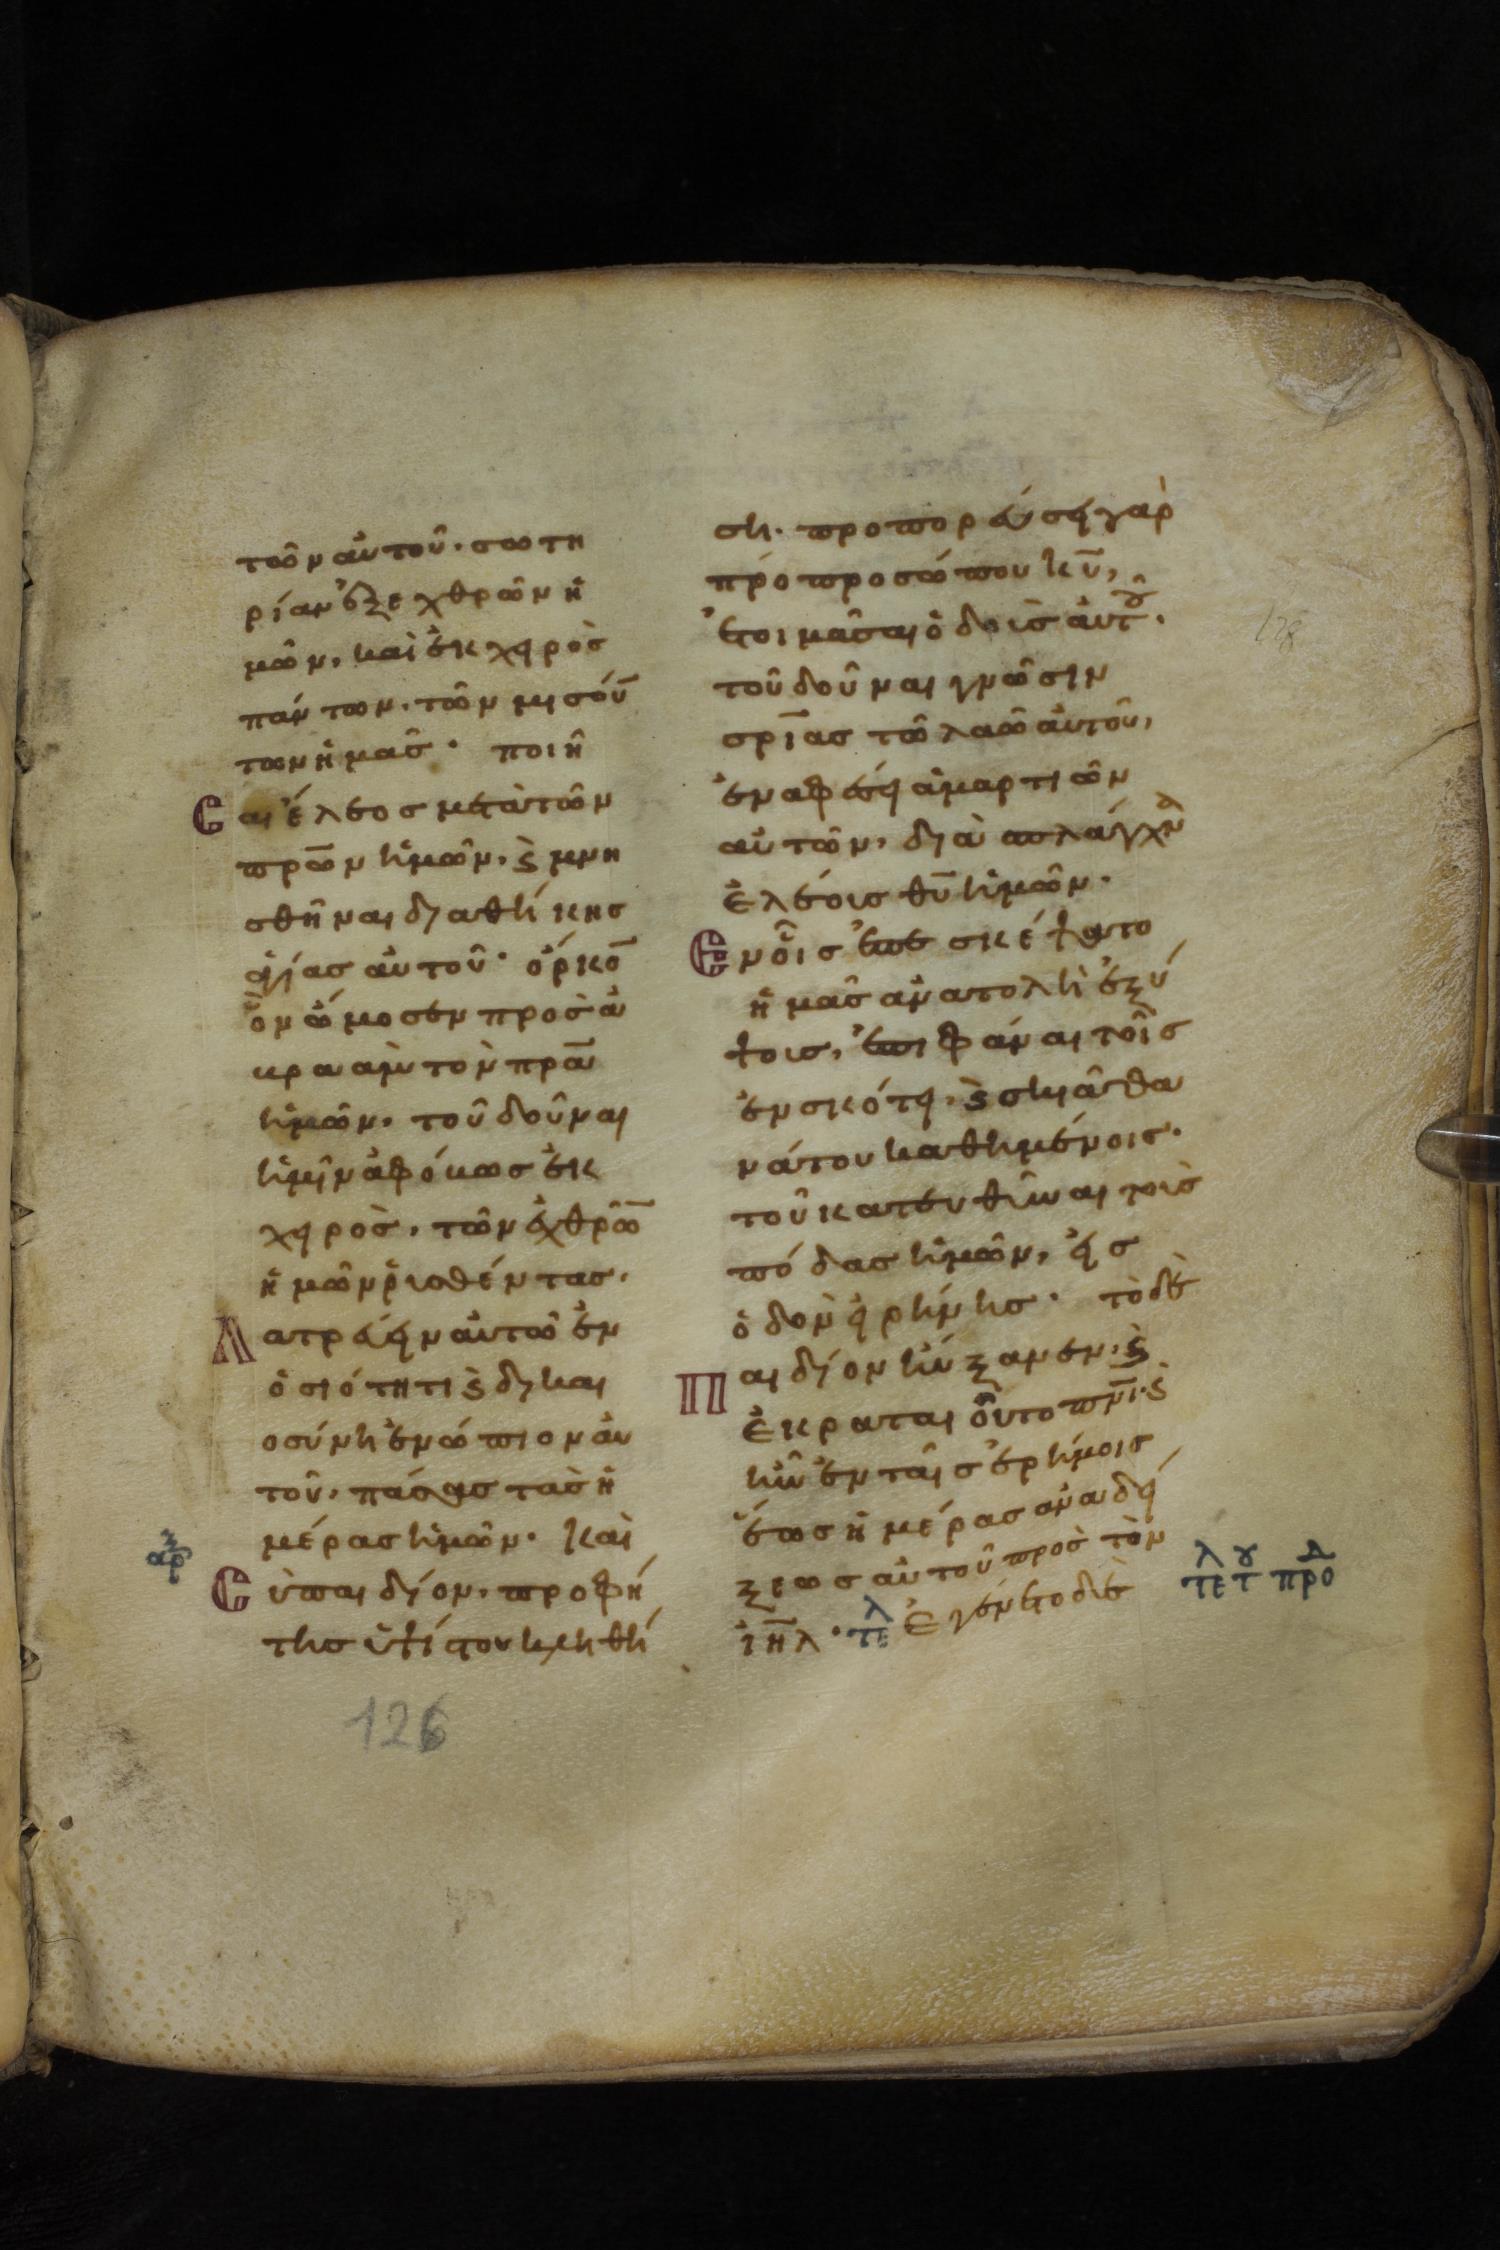 τῶν αὐτοῦ· σωτη
ρίαν ἐξ ἐχθρῶν ἡ
μῶν, καὶ ἐκ χειρὸς
πάντων, τῶν μισού̅
των ἡμᾶς· ποιῆ
σαι ἔλεος μετὰ τῶν
πρω̅ν ἡμῶν, ϛ μνη
σθῆναι διαθήκης
ἁγίας αὐτοῦ· ὅρκο̅
ὃν ὤμοσεν πρὸς ἀ
βρααμ τὸν πρα̅
ἡμῶν, τοῦ δοῦναι
ἡμῖν ἀφόβως ἐκ
χειρὸς, τῶν ἐχθρῶ̅
ἡμῶν ῥισθέντας,
Λατρεύειν αὐτῶ ἐν
ὁσιότητι ϛ δικαι
οσύνη ἐνώπιον αὐ
τοῦ, πάσας τὰς ἡ
μέρας ἡμῶν· καὶ
ἀρξ
Σὺ παιδίον, προφή
της ὑψίστου κληθή
ση· προπορεύσει γὰρ
πρὸ προσώπου κυ̅,
ἑτοιμᾶσαι ὁδοὶς αὐτοῦ·
τοῦ δοῦναι γνῶσιν
σρ̅ιας τῶ λαῶ αὐτοῦ,
ἐν ἀφέσει ἁμαρτιῶν
αὐτῶν, διὰ σπλάγχν
ἐλέοις θυ̅ ἡμῶν·
Ἐν οἷς ἐπεσκέψατο
ἡμᾶς ἀνατολὴ ἐξ ὑ
ψοις, ἐπιφάναι τοῖς
ἐν σκότει, ϛ σκιᾶ θα
νάτου καθημένοις·
τοῦ κατευθῦναι τοὶς
πόδας ἡμῶν, εἰς
ὁδὸν εἰρήνης· τὸ δὲ
Παιδίον ηὔξανεν, ϛ
ἐκραταιοῦτο πν̅ι· ϛ
ἦν ἐν ταῖς ἐρήμοις
ἕως ἡμέρας ἀναδεί
ξεως αὐτοῦ πρὸς τὸν
ἰη̅λ· τελ Ἐγένετο δὲ
τελ τ̅ου προδ
126
128